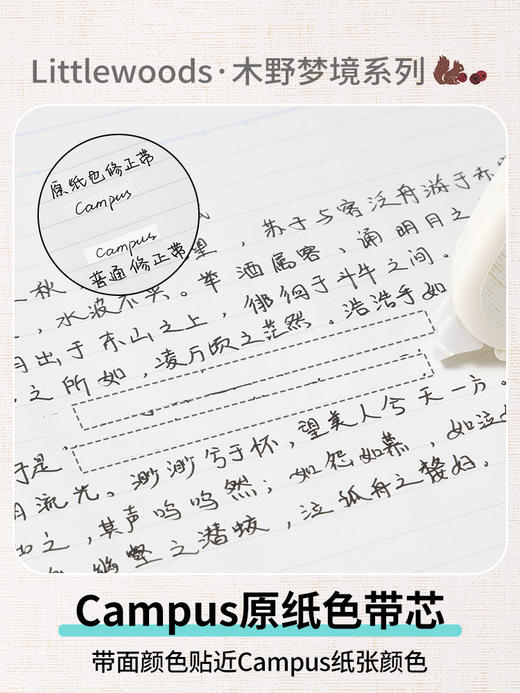 Littlewoods·木野梦境系列
原纸色修正带
Campus
Campus
普通修正带
秋 望，苏子与客泛舟游于赤
，水波不兴。举酒属客，诵明月之
月出于东山之上，徘徊于斗牛之间。
之所如，凌万顷之茫然。浩浩乎如
于是
流光。渺渺兮于怀，望美人兮天一方。
之，其声呜呜然；如怨如慕，如泣
壑之潜蛟，泣孤舟之嫠妇。
Campus原纸色带芯
带面颜色贴近Campus纸张颜色